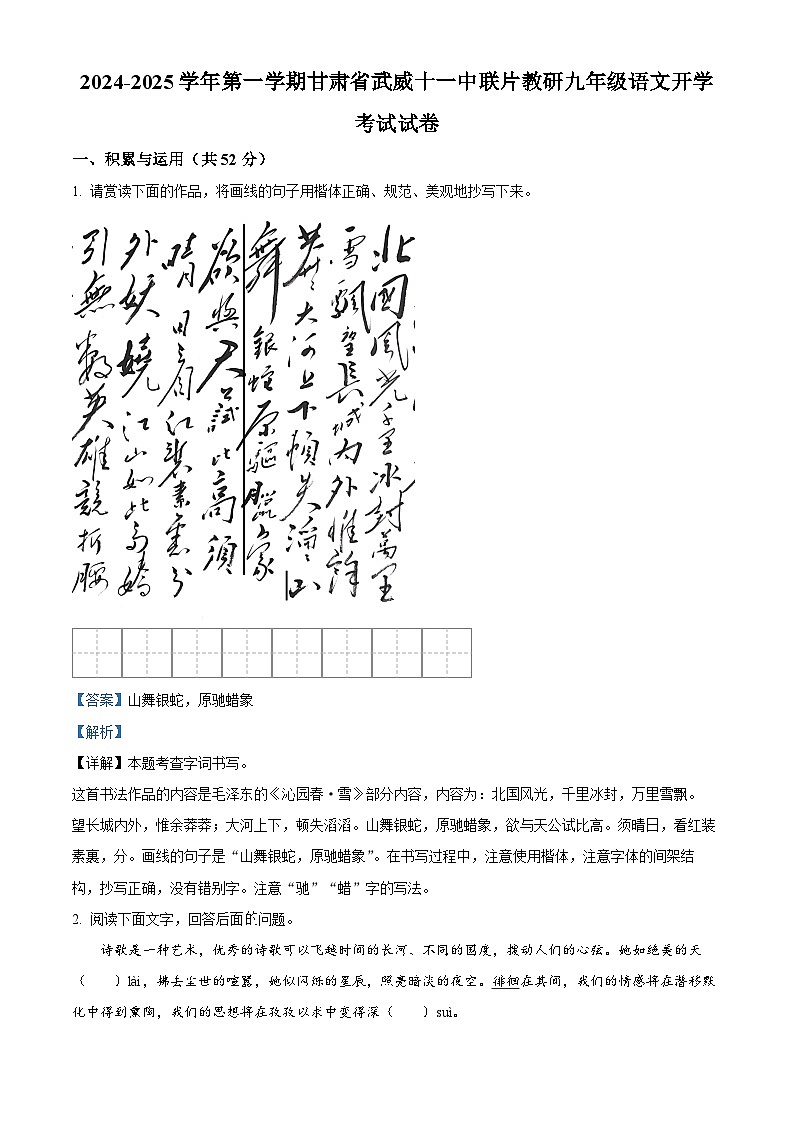 2024-2025学年第一学期甘肃省武威十一中联片教研九年级语文开学
考试试卷
一、积累与运用（共52分）
1. 请赏读下面的作品，将画线的句子用楷体正确、规范、美观地抄写下来。
北國風光千里冰封萬里
雪飄望長城内外惟餘
莽莽大河上下頓失滔滔山
舞銀蛇原驅臘象
欲與天公試比高須
晴日看红裝素裹分
外妖嬈江山如此多嬌
引無數英雄競折腰
【答案】山舞银蛇，原驰蜡象
【解析】
【详解】本题考查字词书写。
这首书法作品的内容是毛泽东的《沁园春·雪》部分内容，内容为：北国风光，千里冰封，万里雪飘。
望长城内外，惟余莽莽；大河上下，顿失滔滔。山舞银蛇，原驰蜡象，欲与天公试比高。须晴日，看红装
素裹，分。画线的句子是“山舞银蛇，原驰蜡象”。在书写过程中，注意使用楷体，注意字体的间架结
构，抄写正确，没有错别字。注意“驰”“蜡”字的写法。
2. 阅读下面文字，回答后面的问题。
诗歌是一种艺术，优秀的诗歌可以飞越时间的长河、不同的国度，拨动人们的心弦。她如绝美的天
（　　）lài，拂去尘世的喧嚣，她似闪烁的星辰，照亮暗淡的夜空。徘徊在其间，我们的情感将在潜移默
化中得到熏陶，我们的思想将在孜孜以求中变得深（　　）suì。